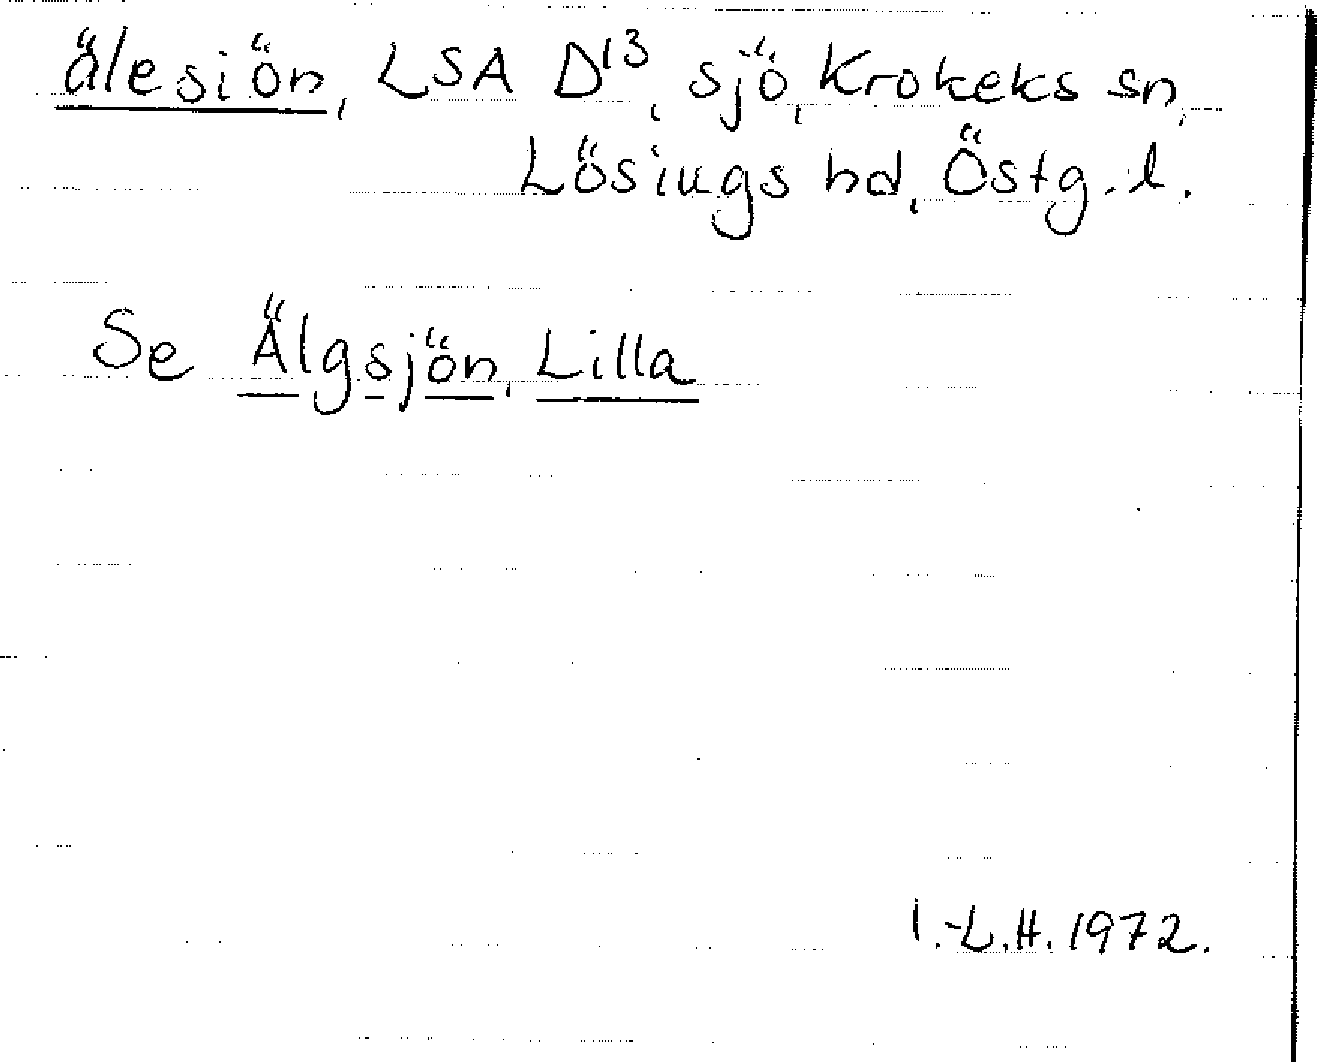 älesiön, LSA D¹³, sjö, Krokeks sn,
Lösings hd, Östg. l.
Se Älgsjön, Lilla
I.-L.H. 1972.